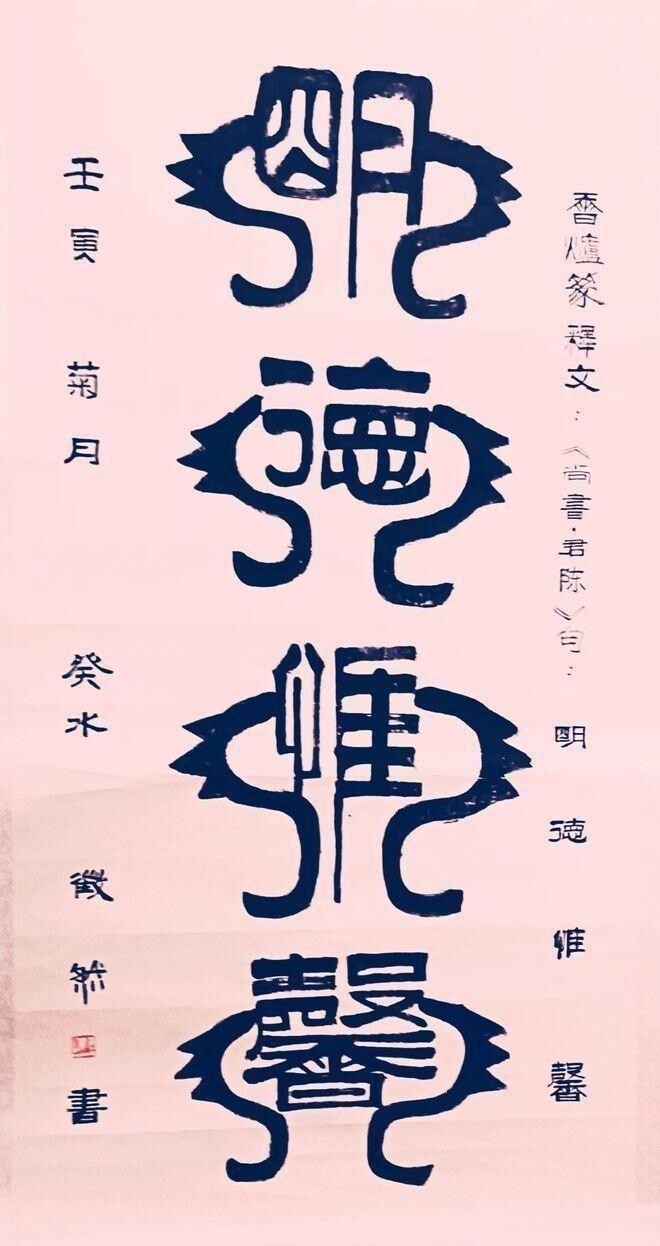 香爐篆释文：《尚書·君陈》句：明德惟馨
明德惟馨
壬寅 菊月 癸水 徵然 書